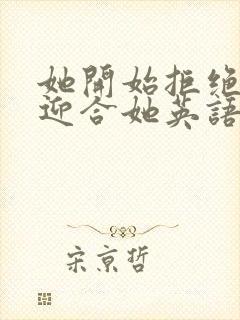 她開始拒绝
迎合她英語
宋京哲